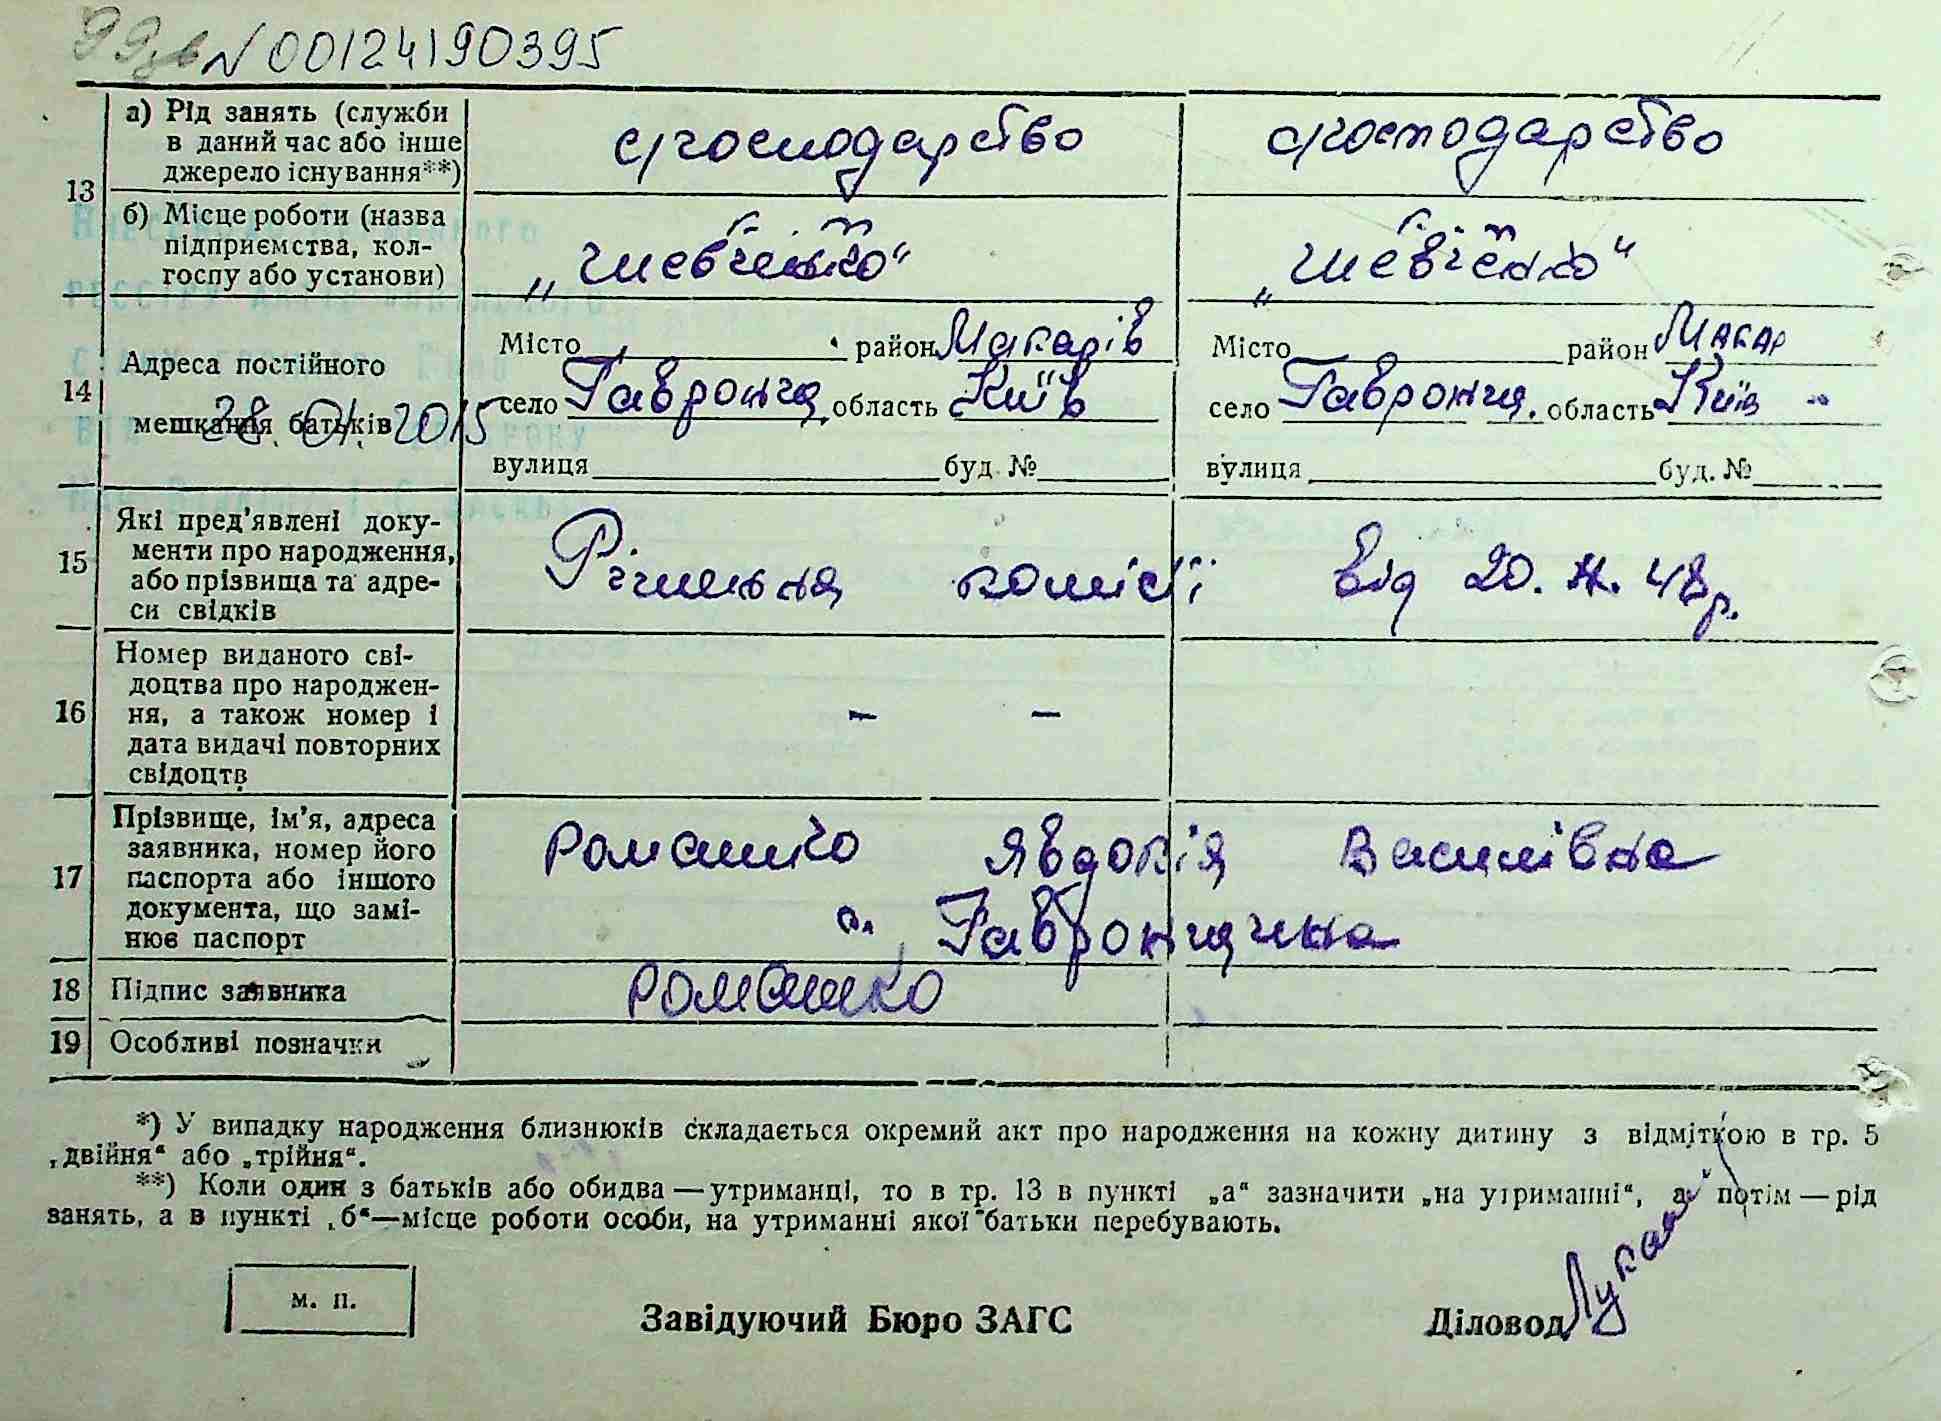 N00124190395
13
а) Рід занять (служби в даний час або інше джерело існування**)
с/господарство
с/господарство
б) Місце роботи (назва підприємства, колгоспу або установи)
„Шевченко“
„Шевченко“
14
Адреса постійного мешкання батьків
28.01.2015
Місто район Макарів
село Гавронщ. область Київ
вулиця буд. №
Місто район Макар
село Гавронщ. область Київ
вулиця буд. №
15
Які пред'явлені документи про народження, або прізвища та адреси свідків
Рішення комісії від 20. 48р.
16
Номер виданого свідоцтва про народження, а також номер і дата видачі повторних свідоцтв
– –
17
Прізвище, ім'я, адреса заявника, номер його паспорта або іншого документа, що замінює паспорт
Ромашко Явдокія Василівна
с. Гавронщина
18
Підпис заявника
Ромашко
19
Особливі позначки
*) У випадку народження близнюків складається окремий акт про народження на кожну дитину з відміткою в гр. 5
„двійня“ або „трійня“.
**) Коли один з батьків або обидва — утриманці, то в гр. 13 в пункті „а“ зазначити „на утриманні“, а потім — рід
занять, а в пункті „б“—місце роботи особи, на утриманні якої батьки перебувають.
м. п.
Завідуючий Бюро ЗАГС
Діловод